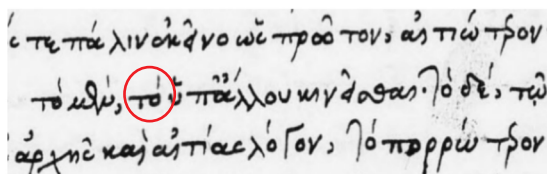 τε πάλιν ἐκεῖνο ὡς πρῶτον, αἰτιώτερον
τὸ τὸ ὑπ' ἄλλου κινεῖσθαι· τὸ δέ, τῷ
ἀρχῆς καὶ αἰτίας λόγον, τὸ πορρώτερον